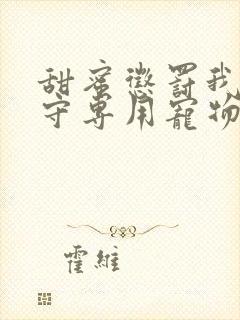 甜蜜懲罰我
守專用寵物
霍維